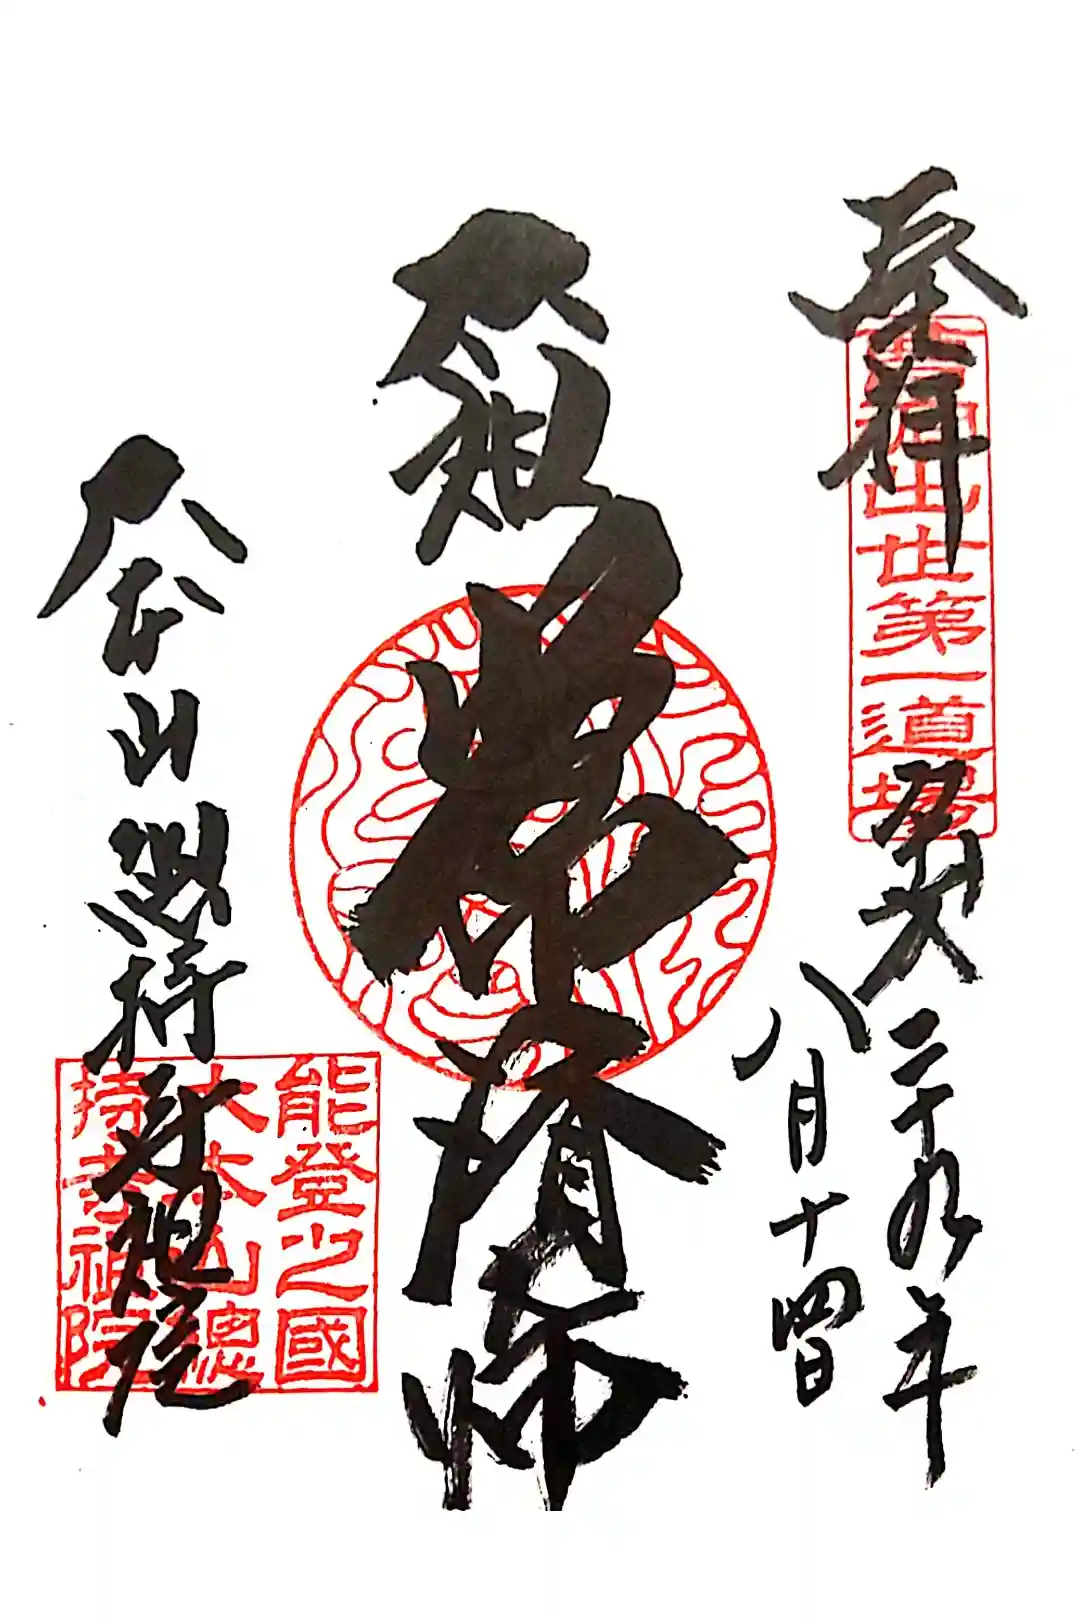 奉拝
曹洞出世第一道場
平成二十九年
八月十四日
太祖常濟大師
大本山總持寺祖院
能登之國
大本山總
持寺祖院